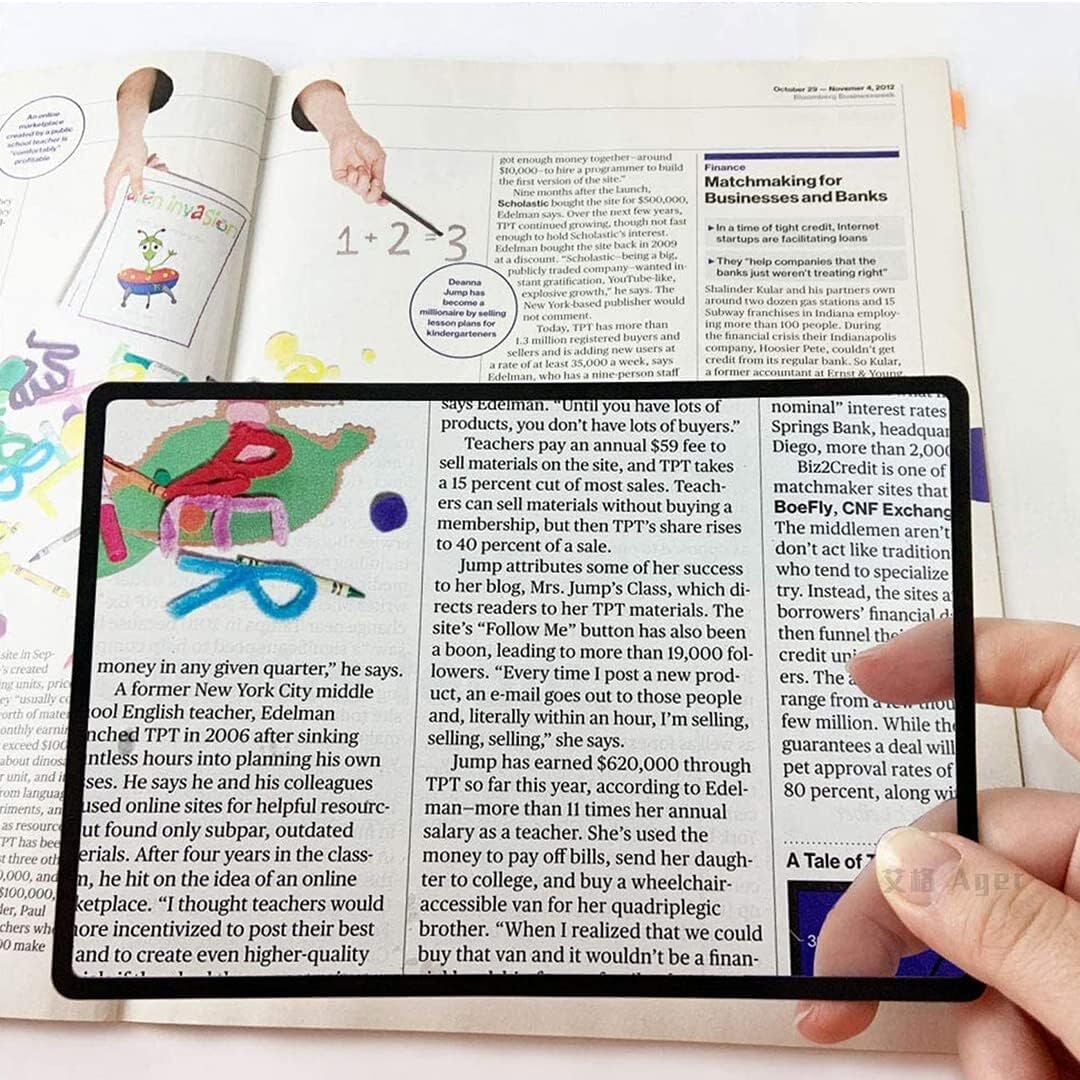 October 29 — Novemer 4, 2012
Bloomberg Businessweek
An online
marketplace
created by a public
school teacher is
"comfortably"
profitable
invasion
1 + 2 = 3
Deanna
Jump has
become a
millionaire by selling
lesson plans for
kindergarteners
got enough money together—around
$10,000—to hire a programmer to build
the first version of the site."
Nine months after the launch,
Scholastic bought the site for $500,000,
Edelman says. Over the next few years,
TPT continued growing, though not fast
enough to hold Scholastic's interest.
Edelman bought the site back in 2009
at a discount. "Scholastic—being a big,
publicly traded company—wanted in-
stant gratification, YouTube-like,
explosive growth," he says. The
New York-based publisher would
not comment.
Today, TPT has more than
1.3 million registered buyers and
sellers and is adding new users at
a rate of at least 35,000 a week, says
Edelman, who has a nine-person staff
Finance
Matchmaking for
Businesses and Banks
▸ In a time of tight credit, Internet
startups are facilitating loans
▸ They "help companies that the
banks just weren't treating right"
Shalinder Kular and his partners own
around two dozen gas stations and 15
Subway franchises in Indiana employ-
ing more than 100 people. During
the financial crisis their Indianapolis
company, Hoosier Pete, couldn't get
credit from its regular bank. So Kular,
a former accountant at Ernst & Young,
site in Sep-
's created
ing units, price
ey "usually co
orth of mater
onthly earnin
exceed $100
about dinosa
r unit, and it
rom languag
riments, an
as resource
TPT has bee
t three oth
0,000, and
$100,000,
ler, Paul
chers who
00 make
money in any given quarter," he says.
A former New York City middle
ool English teacher, Edelman
nched TPT in 2006 after sinking
ntless hours into planning his own
ses. He says he and his colleagues
used online sites for helpful resourc-
ut found only subpar, outdated
erials. After four years in the class-
m, he hit on the idea of an online
ketplace. "I thought teachers would
ore incentivized to post their best
and to create even higher-quality
says Edelman. "Until you have lots of
products, you don't have lots of buyers."
Teachers pay an annual $59 fee to
sell materials on the site, and TPT takes
a 15 percent cut of most sales. Teach-
ers can sell materials without buying a
membership, but then TPT's share rises
to 40 percent of a sale.
Jump attributes some of her success
to her blog, Mrs. Jump's Class, which di-
rects readers to her TPT materials. The
site's "Follow Me" button has also been
a boon, leading to more than 19,000 fol-
lowers. "Every time I post a new prod-
uct, an e-mail goes out to those people
and, literally within an hour, I'm selling,
selling, selling," she says.
Jump has earned $620,000 through
TPT so far this year, according to Edel-
man—more than 11 times her annual
salary as a teacher. She's used the
money to pay off bills, send her daugh-
ter to college, and buy a wheelchair-
accessible van for her quadriplegic
brother. "When I realized that we could
buy that van and it wouldn't be a finan-
nominal" interest rates
Springs Bank, headquar
Diego, more than 2,000
Biz2Credit is one of
matchmaker sites that
BoeFly, CNF Exchang
The middlemen aren't
don't act like tradition
who tend to specialize
try. Instead, the sites a
borrowers' financial d
then funnel the
credit uni
ers. The a
range from a few thou
few million. While the
guarantees a deal will
pet approval rates of
80 percent, along wi
A Tale of
3
艾格 Ager